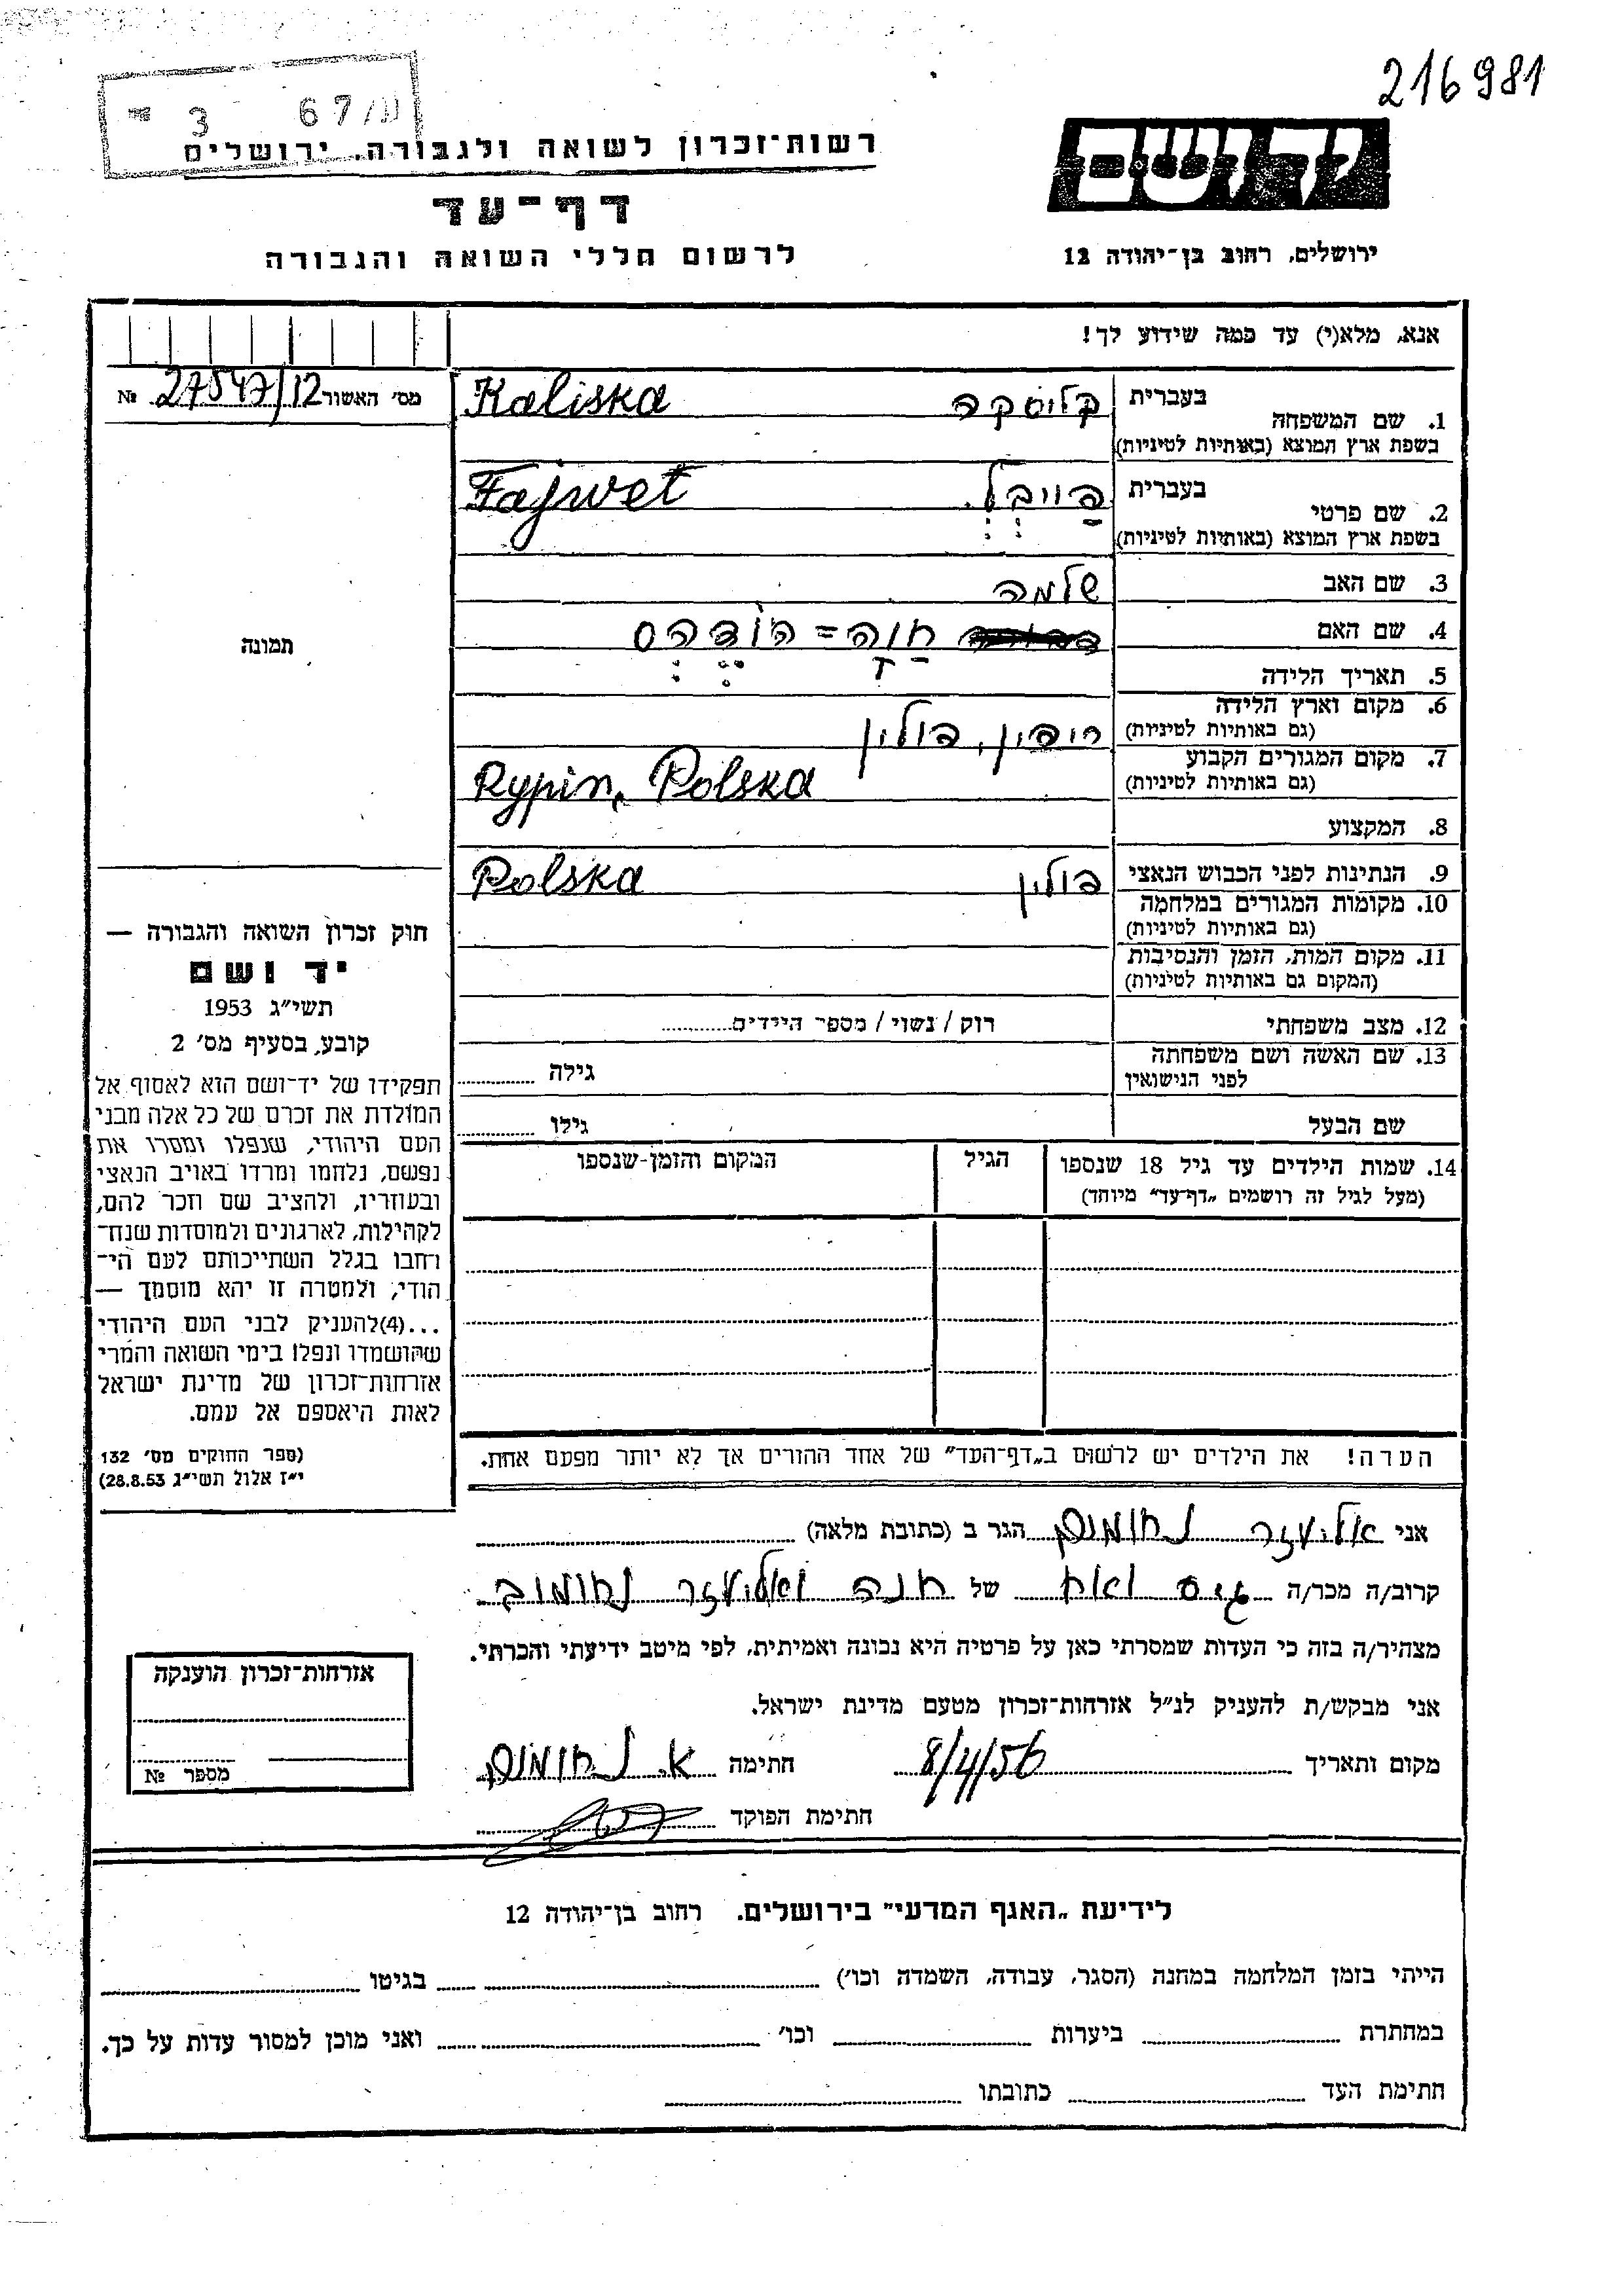 216981
3 67/נו
רשות־זכרון לשואה ולגבורה, ירושלים
יד ושם
דף־עד
לרשום חללי השואה והגבורה
ירושלים, רחוב בן־יהודה 12
אנא, מלא(י) עד כמה שידוע לך!
מס' האשור 27547/12 №
1. שם המשפחה בעברית קליסקה Kaliska
בשפת ארץ המוצא (באותיות לטיניות)
2. שם פרטי בעברית פייבל Fajwet
בשפת ארץ המוצא (באותיות לטיניות)
3. שם האב שלמה
4. שם האם חוה = הודהס
5. תאריך הלידה
6. מקום וארץ הלידה ריפין, פולין
(גם באותיות לטיניות)
7. מקום המגורים הקבוע Rypin, Polska
(גם באותיות לטיניות)
8. המקצוע
9. הנתינות לפני הכבוש הנאצי פולין Polska
10. מקומות המגורים במלחמה
(גם באותיות לטיניות)
11. מקום המות, הזמן והנסיבות
(המקום גם באותיות לטיניות)
12. מצב משפחתי רוק / נשוי / מספר הילדים
13. שם האשה ושם משפחתה
לפני הנישואין גילה
שם הבעל גילו
14. שמות הילדים עד גיל 18 שנספו הגיל המקום והזמן שנספו
(מעל לגיל זה רושמים „דף־עד" מיוחד)
תמונה
חוק זכרון השואה והגבורה —
יד ושם
תשי"ג 1953
קובע, בסעיף מס' 2
תפקידו של יד־ושם הוא לאסוף אל
המולדת את זכרם של כל אלה מבני
העם היהודי, שנפלו ומסרו את
נפשם, נלחמו ומרדו באויב הנאצי
ובעוזריו, ולהציב שם וזכר להם,
לקהילות, לארגונים ולמוסדות שנח־
רחבו בגלל השתייכותם לעם הי־
הודי, ולמטרה זו יהא מוסמך —
...(4)להעניק לבני העם היהודי
שהושמדו ונפלו בימי השואה והמרי
אזרחות־זכרון של מדינת ישראל
לאות היאספם אל עמם.
(ספר החוקים מס' 132
י"ז אלול תשי"ג 28.8.53)
הערה! את הילדים יש לרשום ב„דף־העד" של אחד ההורים אך לא יותר מפעם אחת.
אני אליעזר נחומוב הגר ב (כתובת מלאה)
קרוב/ה מכר/ה גיס ואח של חנה ואליעזר נחומוב
מצהיר/ה בזה כי העדות שמסרתי כאן על פרטיה היא נכונה ואמיתית, לפי מיטב ידיעתי והכרתי.
אני מבקש/ת להעניק לנ"ל אזרחות־זכרון מטעם מדינת ישראל.
מקום ותאריך 8/4/56 חתימה א. נחומוב
חתימת הפוקד
אזרחות־זכרון הוענקה
מספר №
לידיעת „האגף המדעי" בירושלים. רחוב בן־יהודה 12
הייתי בזמן המלחמה במחנה (הסגר, עבודה, השמדה וכו') בגיטו
במחתרת ביערות וכו' ואני מוכן למסור עדות על כך.
חתימת העד כתובתו